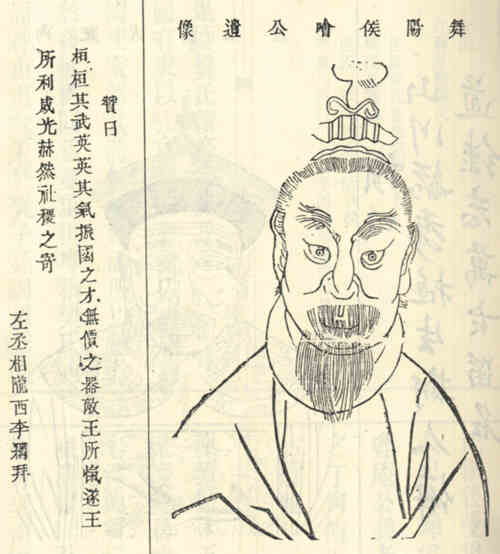 舞陽侯噲公遺像
贊曰
桓桓其武英英其氣振國之才無價之器敵王所愾遂王
所利威光赫然社稷之寄
左丞相隴西李拜